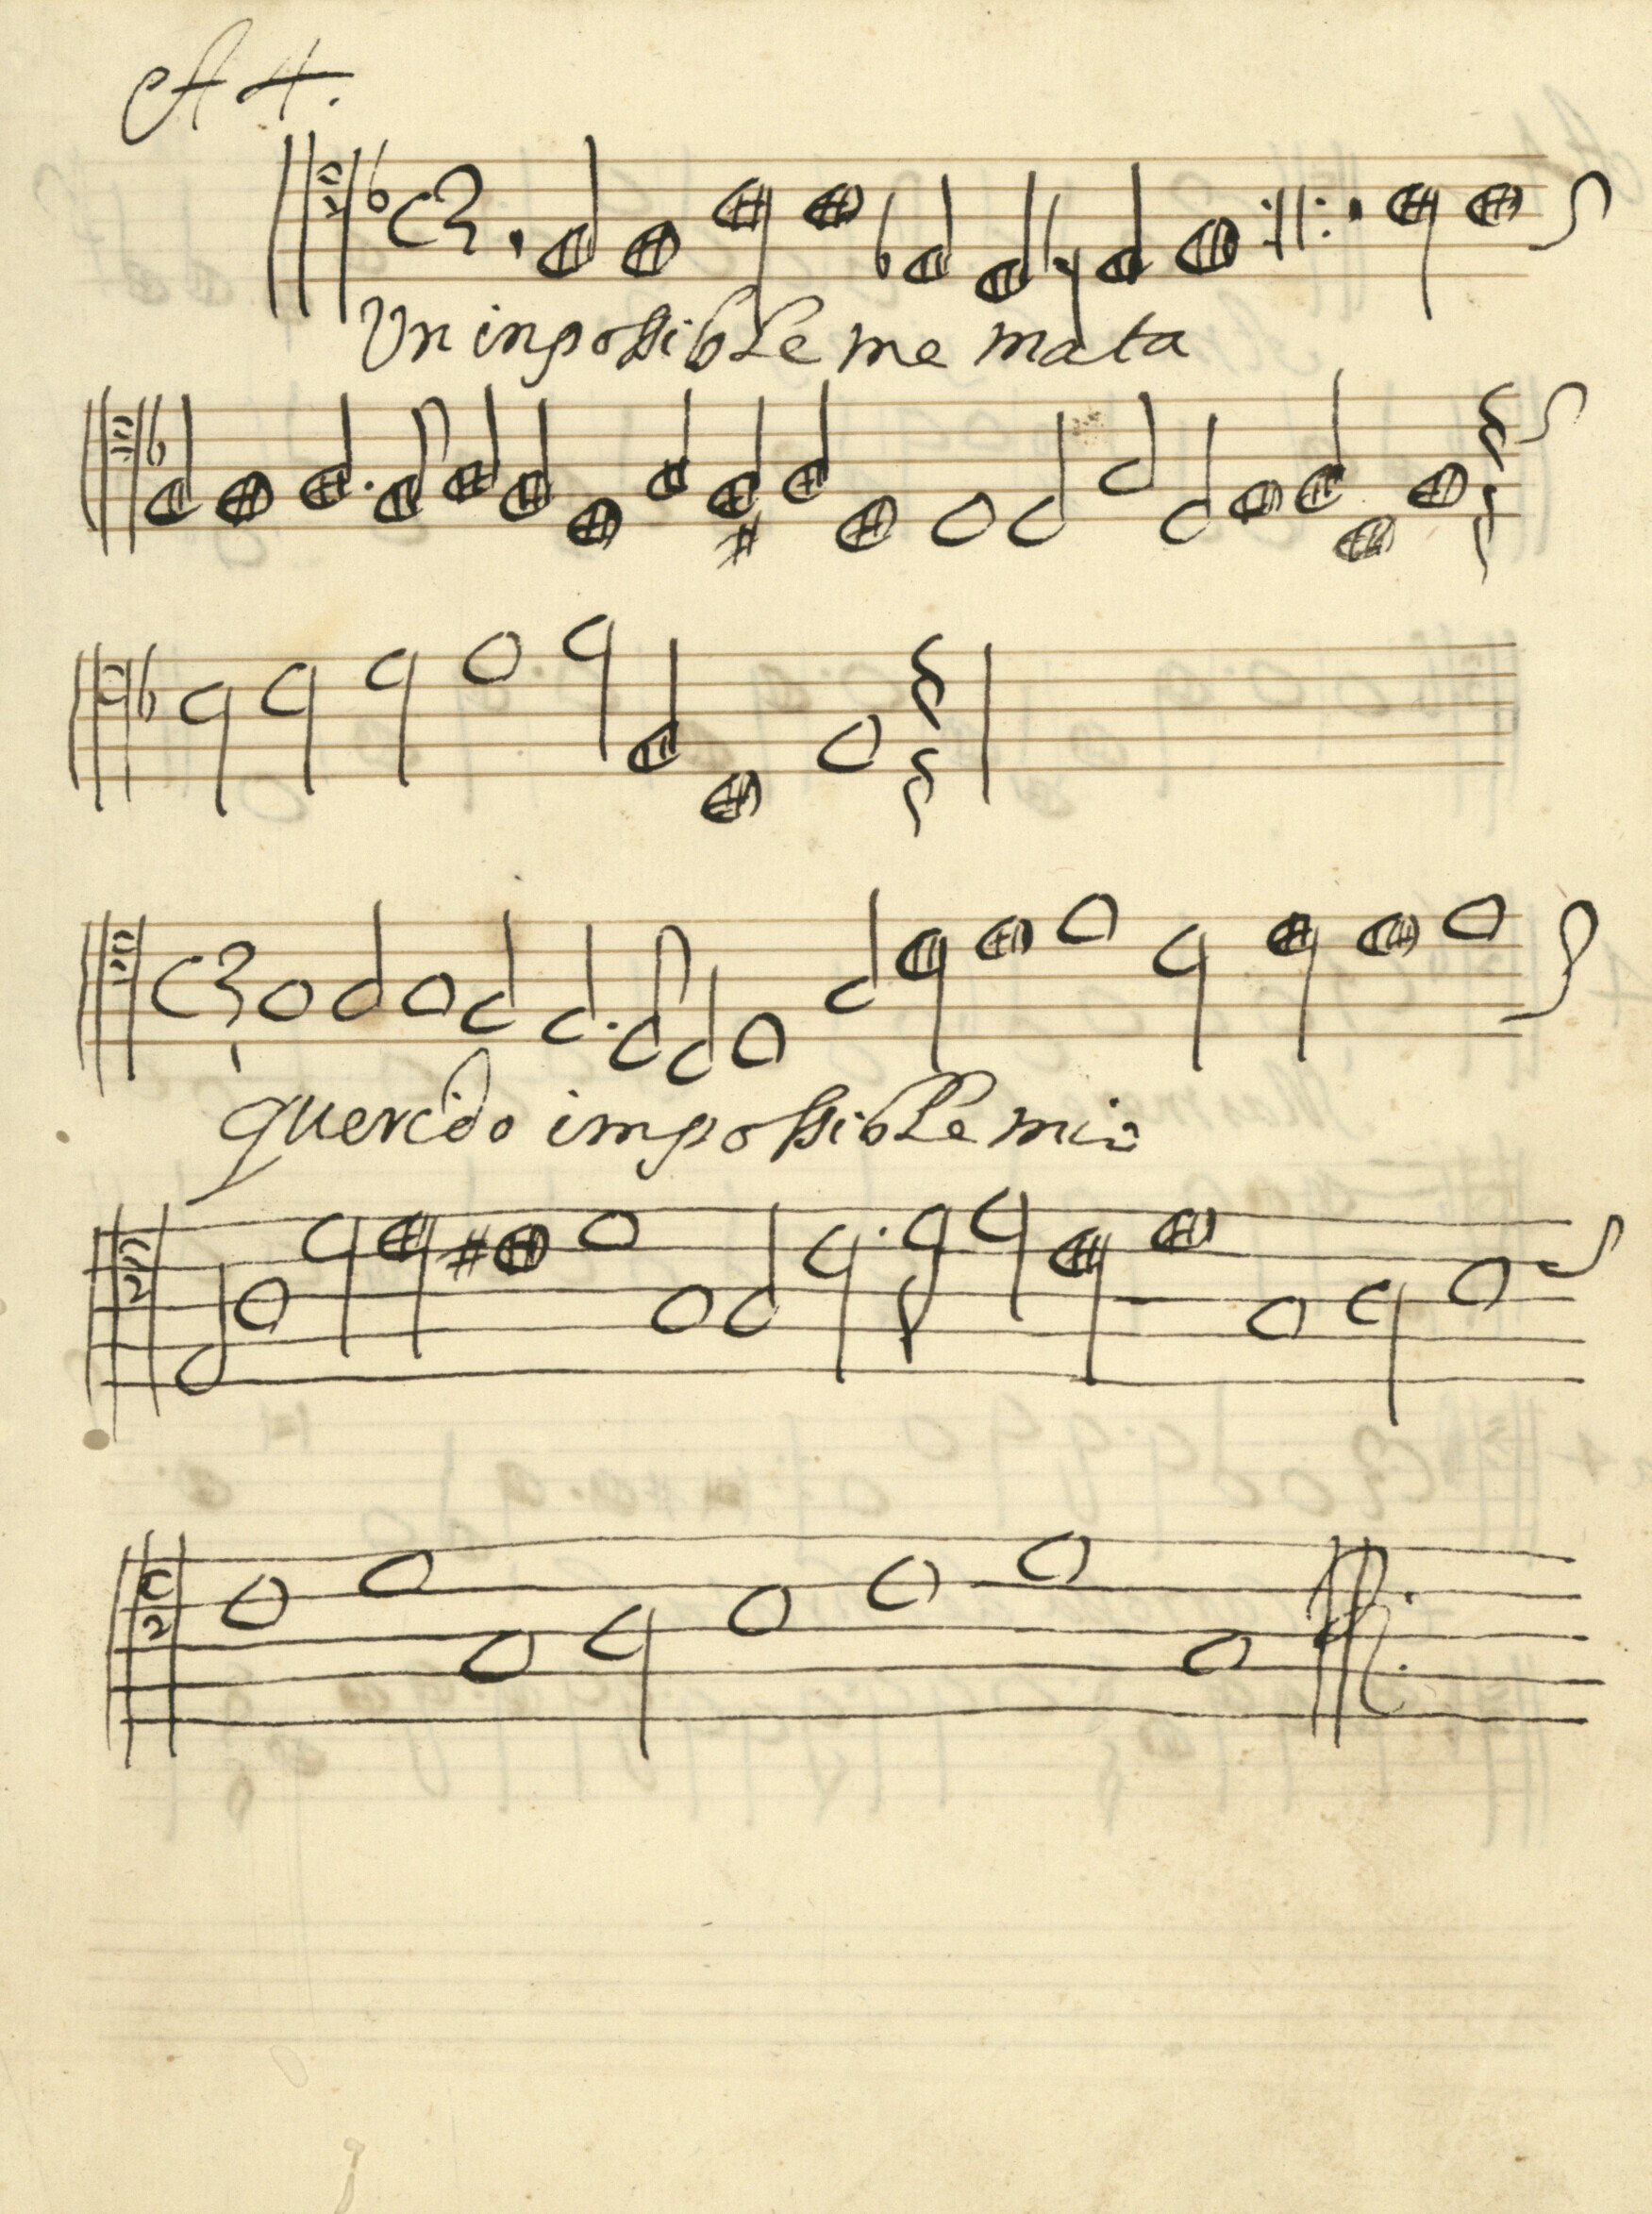 A 4.
Un inpossible me mata
querido impossible mio